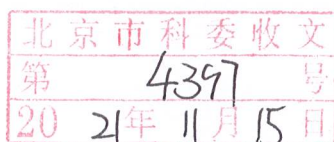 北京市科委收文
第 4397 号
20 21年 11月 15日